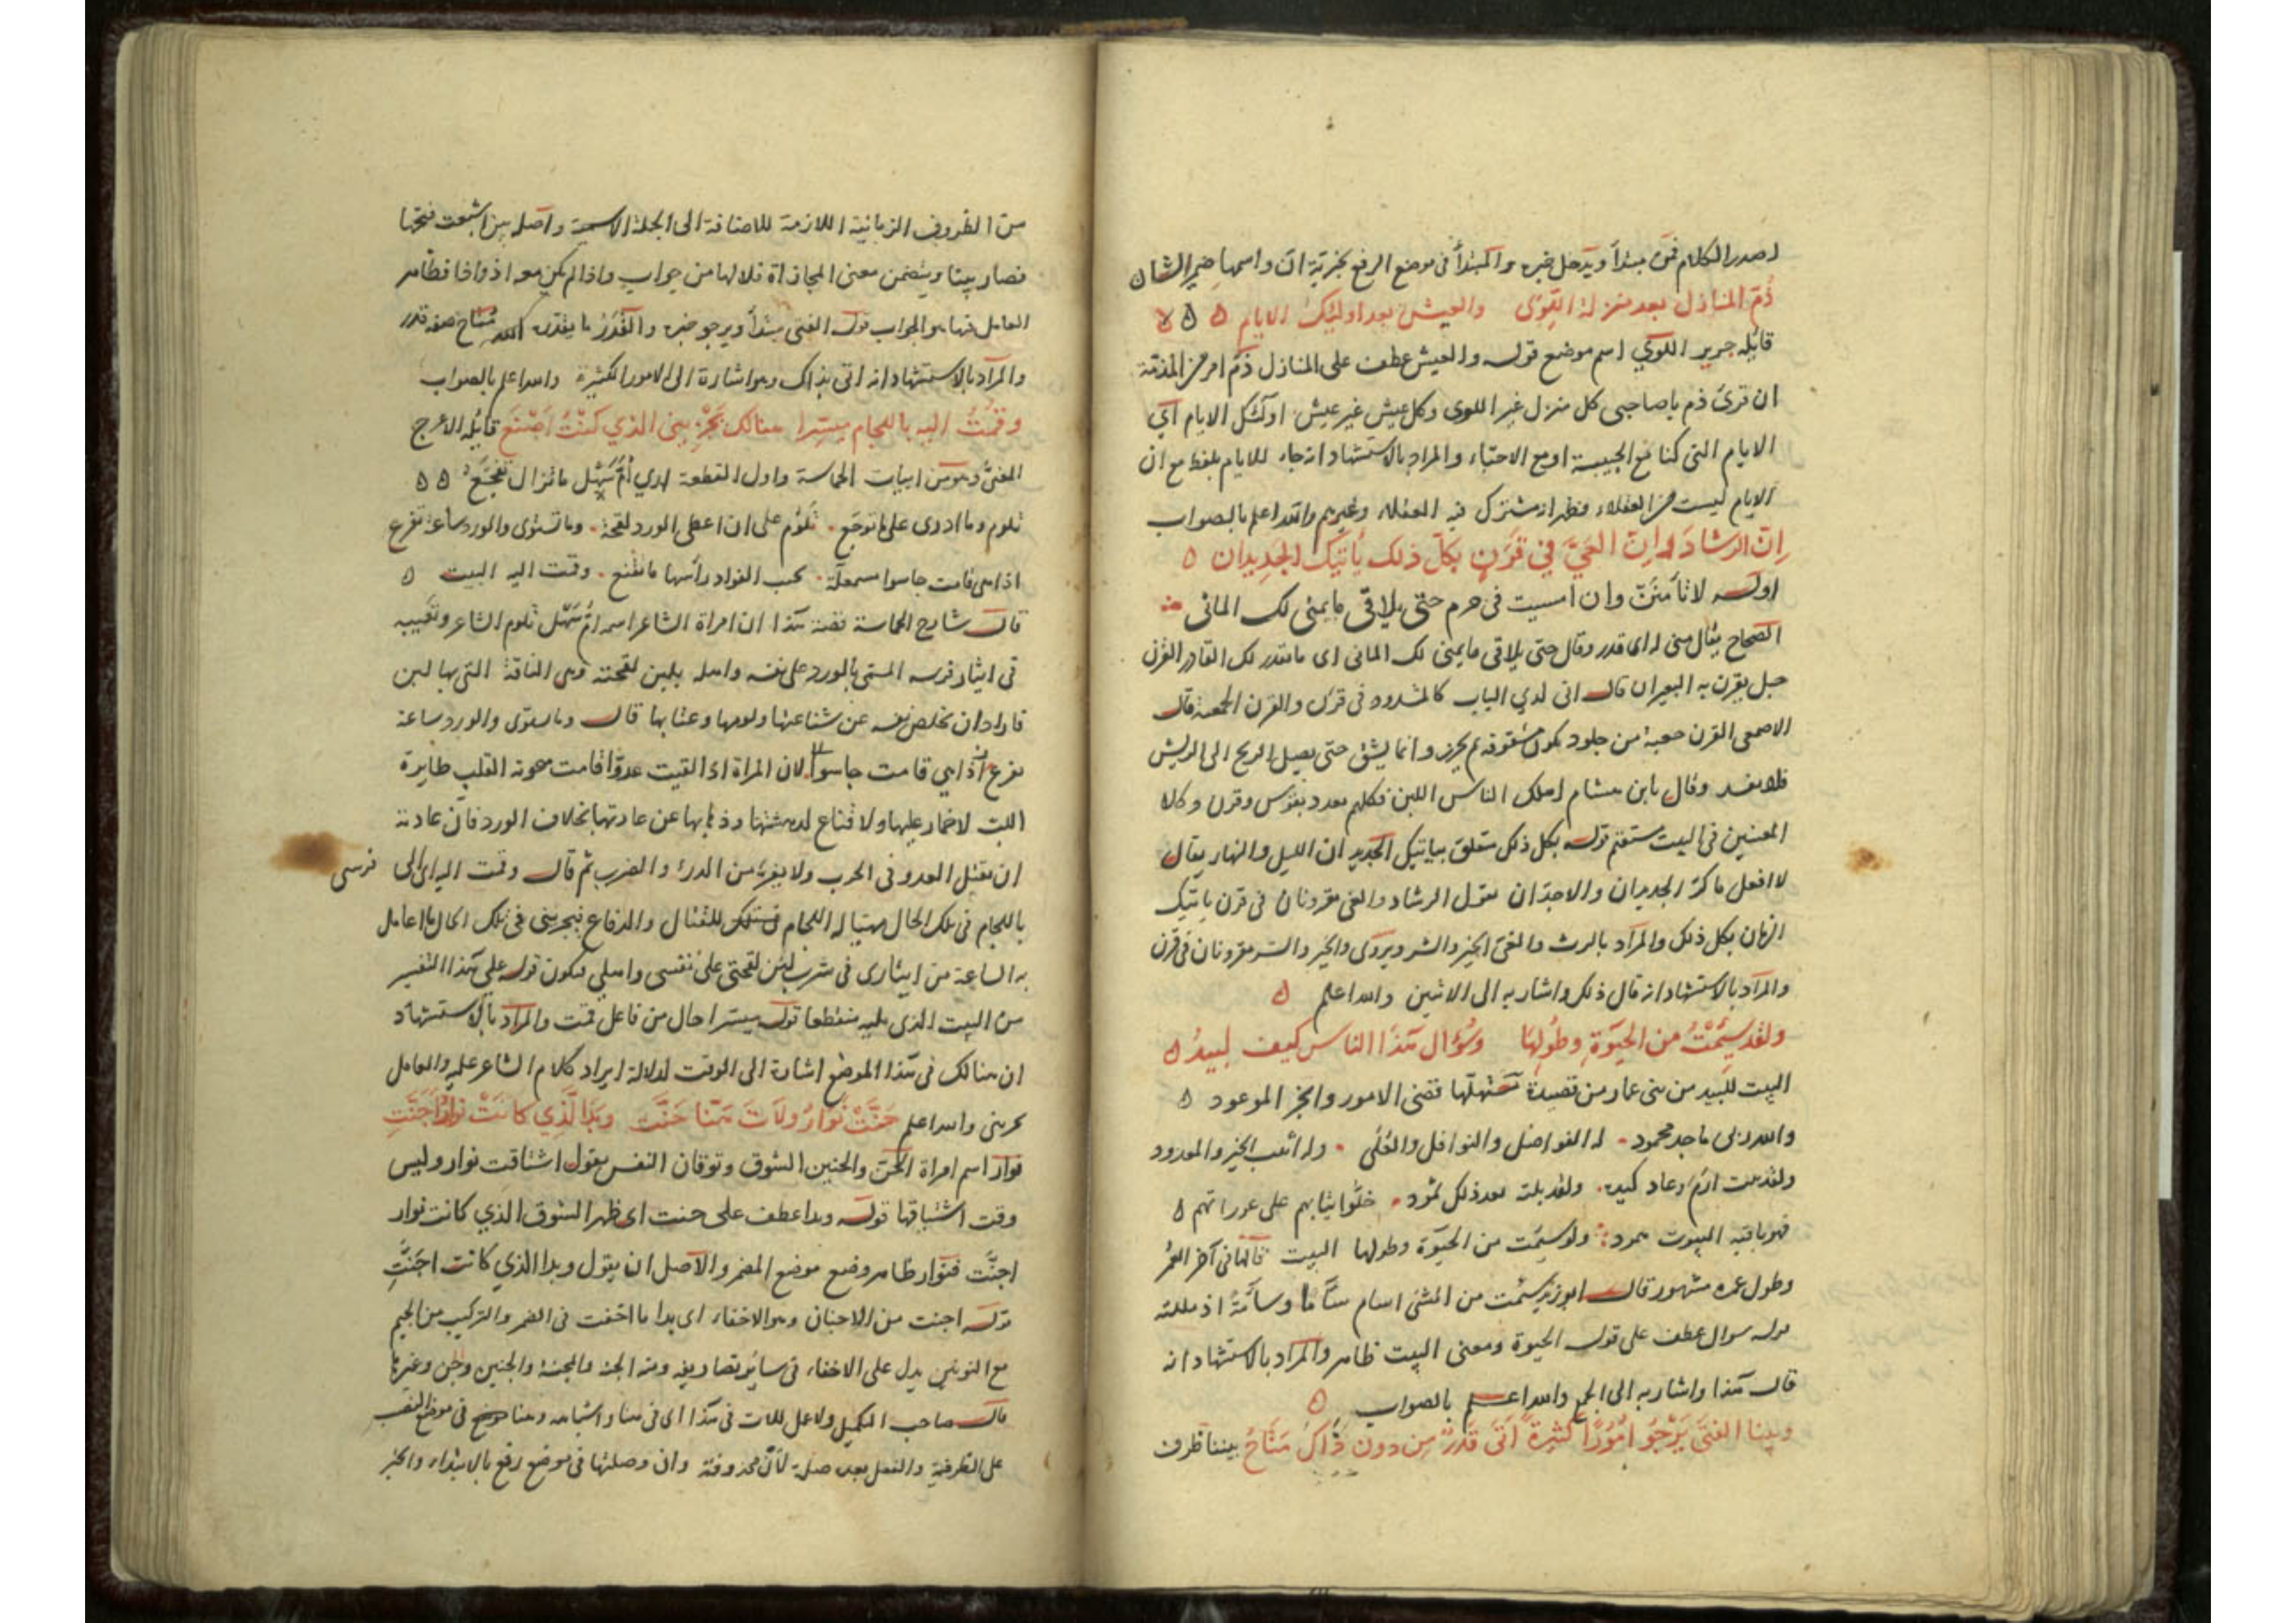 لصدر الكلام فمن مبتدأ ويدخل خبره والمبتدأ في موضع الرفع بخبرية ان واسمها ضمير الشان
ذُمّ المنازل بعد منزلة اللوى والعيش بعد اولئك الايام
قايله جرير اللوي اسم موضع قوله والعيش عطف على المنازل ذم امر من المذمة
ان قرئ ذم ياصاحبى كل منزل غير اللوى وكل عيش غير عيش اولئك الايام اي
الايام التي كنا مع الحبيبة او مع الاحباء والمراد بالاستشهاد انه جاء للايام بلفظ مع ان
الايام ليست من العقلاء فظهر انه مشترك فيه العقلاء وغيرهم والله اعلم بالصواب
اِنّ الرشادَ واِنّ الغيَّ في قَرَنٍ بكلّ ذلك يأتيك الجديدان
اوله لا تأمننّ وان امسيت في حرم حتى يلاقي ما يمنى لك المانى
الصحاح يقال منى له اى قدر وقال حتى يلاقي ما يمنى لك المانى اى ما يقدر لك القادر القرن
حبل يقرن به البعيران قال انى لدي الباب كالمشدود في قرن والقرن الجعبة قال
الاصمعى القرن جعبة من جلود تكون مشقوقة ثم يخرز وانما يشق حتى يصل الريح الى الريش
فلا يفسد وقال يابن هشام اهلك الناس اللبن فكلهم يعدو بقوس وقرن وكلا
المعنيين في البيت مستقيم قوله بكل ذلك متعلق بياتيك الجديدان الليل والنهار يقال
لا افعل ما كر الجديدان والاجدّان يقول الرشاد والغى مقرونان في قرن ياتيك
الزمان بكل ذلك والمراد بالرشد والغى الخير والشر ويروى والخير والشر مقرونان في قرن
والمراد بالاستشهاد انه قال ذلك واشار به الى الاثنين والله اعلم
ولقد سَئِمْتُ من الحيوةِ وطُولِها وسُؤال هذا الناس كيف لبيدُ
البيت للبيد من بنى عامر من قصيدة مستهلّها قضى الامور وانجز الموعود
والله ربى ماجد محمود له الفواضل والنوافل والعُلى وله اثيث الخير والمعدود
ولقد بلت ارم وعاد كيده ولقد بلته بعد ذلك ثمود خلّوا ثيابهم على عوراتهم
فهم بافنية البيوت همود ولقد سئمت من الحيوة وطولها البيت قالها في آخر العمر
وطول عمره مشهور قال ابو زيد سئمت من الشئ اسام سأما وسأمة اذ مللته
قوله سوال عطف على قوله الحيوة ومعنى البيت ظاهر والمراد بالاستشهاد انه
قال هذا واشار به الى الجمع والله اعلم بالصواب
وبينا الفتَى يَرْجُو امُورًا كثيرةً اتَى قَدَرٌ من دون ذاكَ مُتَاحُ بيننا ظرف
من الظروف الزمانية اللازمة للاضافة الى الجملة الاسمية واصله بين اشبعت فتحتها
فصار بينا ويتضمن معنى المجازاة فلا لها من جواب واذا لم يكن معه اذ واذا فظاهر
العامل فيها هو الجواب قوله الفتى مبتدأ ويرجو خبره والقَدَرُ ما يقدّره الله متاح صفة قدر
والمراد بالاستشهاد انه اتى بذاك وهو اشارة الى الامور الكثيرة والله اعلم بالصواب
وقُمْتُ اليه باللجام مُيَسِّرا هنالك يَجْزِيني الذي كنْتُ اَصْنَعُ قايله الاعرج
المعنىّ وهو من ابيات الحماسة واول القطعة ارى اُمَّ سَهْل ما تزال تفجّعُ
تلوم وما ادرى على ما توجّع تَلُوم على ان اعطى الورد لقحة وما تستوى والورد ساعة تفزع
اذا هى قامت حاسرا مشمعلّة نخب الفواد رأسها ما تقنع وقمت اليه البيت
قال شارح الحماسة قصة هذا ان امراة الشاعر اسمها ام سهل تلوم الشاعر وتعيبه
في ايثار فرسه المسمى بالورد على نفسه واهله بلبن لقحته وهى الناقة التي بها لبن
فاراد ان يخلص نفسه عن شناعتها ولومها وعتابها قال وما تستوى والورد ساعة
تفزع اذا هي قامت حاسرا لان المراة اذا لقيت عدوا قامت منخوبة القلب طايرة
اللب لا خمار عليها ولا قناع لدهشتها وذهابها عن عادتها بخلاف الورد فان عادته
ان يقتل العدو في الحرب ولا يفر من الدرء والضرب ثم قال وقمت اليه اى الى فرسى
باللجام في تلك الحال مهيّا له اللجام للقتال والدفاع فيجزينى في تلك الحال ما اعامل
به الساعة من ايثارى في شرب لبن لقحتى على نفسى واهلي فيكون قوله على هذا التفسير
من البيت الذى يليه منقطعا قوله ميسرا حال من فاعل قمت والمراد بالاستشهاد
ان هنالك في هذا الموضع اشارة الى الوقت لدلالة ايراد كلام الشاعر عليه والعامل
يجزينى والله اعلم حَنَّتْ نَوَارُ ولَاتَ هَنّا حَنَّتِ وبَدَا الّذِي كانَتْ نَوارُ اَجَنَّتِ
نوار اسم امراة الحنّ والحنين الشوق وتوقان النفس يقول اشتاقت نوار وليس
وقت اشتياقها قوله وبدا عطف على حنت اى ظهر الشوق الذي كانت نوار
اجنّت فنوار ظاهر وضع موضع المضمر والاصل ان يقول وبدا الذي كانت اجَنَّتِ
قوله اجنت من الاجنان وهو الاخفاء اى بدا ما اخفت في الضمر والتركيب من الجيم
مع النونين يدل على الاخفاء في سائر تصاريفه ومنه الجنة والمجنة والجنين وجن وغيرها
قال صاحب التكميل ولا عمل للات في هذا اى في هنا واشباهه وهنا في موضع النصب
على الظرفية والفعل بعده صلة لأنْ محذوفة وان وصلتها في موضع رفع بالابتداء والخبر